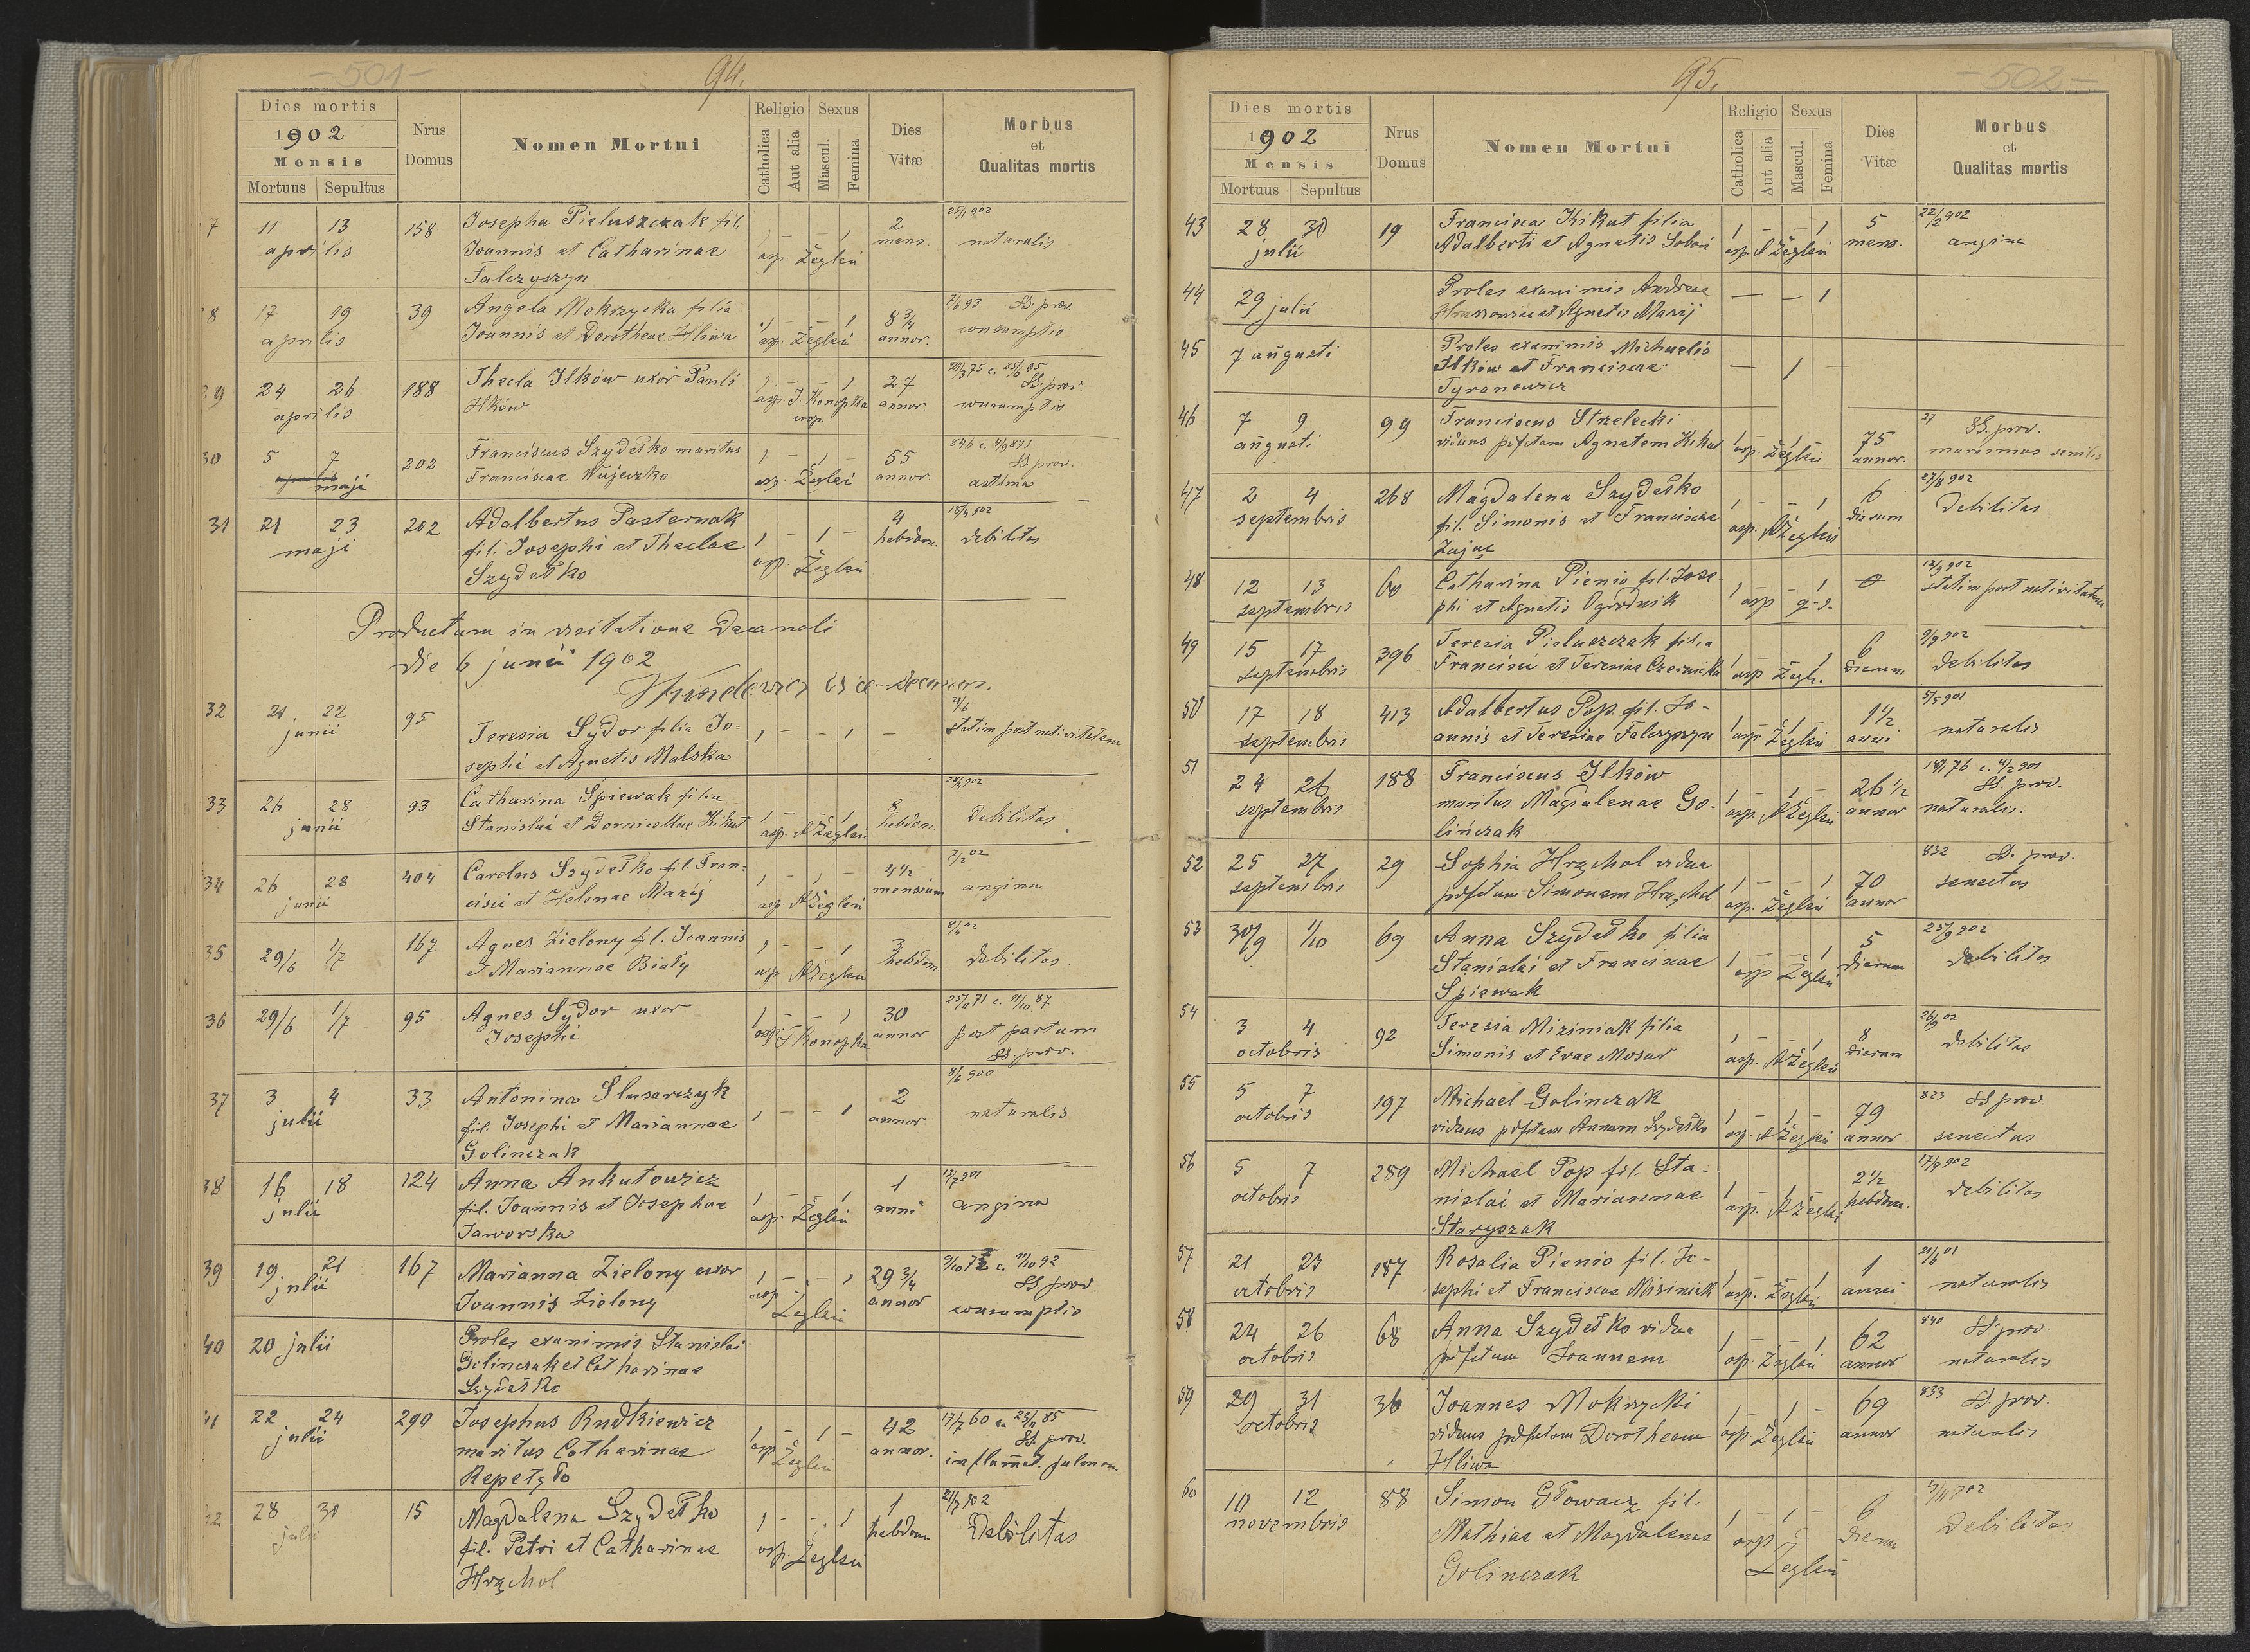 - 501 -
94.
Dies mortis
1902
Mensis
Mortuus Sepultus
Nrus Domus
Nomen Mortui
Religio Sexus
Catholica Aut alia Mascul. Femina
Dies Vitæ
Morbus
et
Qualitas mortis
7 11 13 aprilis 158
Josepha Pieluszczak fil.
Joannis et Catharinae
Falczyszyn
1 - - 1
asp. Żegleń
2 mens.
naturalis
8 17 19 aprilis 39
Angela Mokrzycka filia
Joannis et Dorotheae Hliwa
1 - - 1
asp. Żegleń
8 3/4 annor.
7/6 93 SS. prov.
consumptio
29 24 26 aprilis 188
Thecla Ilków uxor Pauli
Ilków
1 - - 1
asp. J. Konopka
coop.
27 annor.
SS. prov.
consumptio
30 5 7 maji 202
Franciscus Szydełko maritus
Franciscae Wujeczko
1 - 1 -
asp. Żegleń
55 annor.
SS prov.
astma
31 21 23 maji 202
Adalbertus Pasternak
fil. Josephi et Theclae
Szydełko
1 - 1 -
asp. Żegleń
4 hebdom.
902
debilitas
Productum in visitatione Decanali
die 6 junii 1902
Vice-decanus.
32 21 22 junii 95
Teresia Sydor filia Jo-
sephi et Agnetis Malska
1 - - 1 -
21/6
statim post nativitatem
33 26 28 junii 93
Catharina Śpiewak filia
Stanislai et Domicellae Kikut
1 - - 1
asp. A Żegleń
8 hebdom.
902
debilitas
34 26 28 junii 404
Carolus Szydełko fil. Fran-
cisci et Helenae Mazij
1 - 1 -
asp. A Żegleń
4 1/2 mensium
7/2 02
angina
35 29/6 1/7 167
Agnes Zielony fil. Joannis
et Mariannae Biały
1 - - 1
asp. A Żegleń
3 hebdom.
8/6 02
debilitas
36 29/6 1/7 95
Agnes Sydor uxor
Josephi
1 - - 1
asp. J Konopka
30 annor
post partum
SS. prov.
37 3 4 julii 33
Antonina Ślusarczyk
fil. Josephi et Mariannae
Golinczak
1 - - 1
2 annor
8/6 900
naturalis
38 16 18 julii 124
Anna Ankutowicz
fil. Joannis et Josephae
Jaworska
1 - - 1
asp. Żegleń
1 anni
17/7 901
angina
39 19 21 julii 167
Marianna Zielony uxor
Joannis Zielony
1 - - 1
asp Żegleń
29 3/4 annor
SS prov.
consumptio
40 20 julii
Proles exanimis Stanislai
Golinczak et Catharinae
Szydełko
41 22 24 julii 290
Josephus Rudkiewicz
maritus Catharinae
Repetyło
1 - 1 -
asp Żegleń
42 annor.
SS. prov.
inflammat. pulmon.
42 28 30 julii 15
Magdalena Szydełko
fil. Petri et Catharinae
Hrąchol
1 - - 1
asp. Żegleń
1 hebdom
21/7 902
Debilitas
- 502 -
95.
Dies mortis
1902
Mensis
Mortuus Sepultus
Nrus Domus
Nomen Mortui
Religio Sexus
Catholica Aut alia Mascul. Femina
Dies Vitæ
Morbus
et
Qualitas mortis
43 28 30 julii 19
Francisca Kikut filia
Adalberti et Agnetis
1 - - 1
asp. A Żegleń
5 mens.
22/2 902
angina
44 29 julii
Proles exanimis Andreae
et Agnetis Mazij
- - 1
45 7 augusti
Proles exanimis Michaelis
Ilków et Franciscae
Tyranowicz
- 1 -
46 7 9 augusti 99
Franciscus Strzelecki
viduus Agnetem Kikut
1 - 1 -
asp. Żegleń
75 annor.
27 SS. prov.
marasmus senilis
47 2 4 septembris 268
Magdalena Szydełko
fil. Simonis et Franciscae
Zając
1 - - 1
asp. A Żegleń
6 dierum
27/8 902
Debilitas
48 12 13 septembris 60
Catharina Pienio fil. Jose-
phi et Agnetis Ogrodnik
1 - - 1
asp
0
12/9 902
statim post nativitatem
49 15 17 septembris 396
Teresia Pieluszczak filia
Francisci et Teresiae Czernicka
1 - - 1
asp Żegl.
6 dierum
9/9 902
debilitas
50 17 18 septembris 413
Adalbertus Pop fil. Jo-
annis et Teresiae Falczyszyn
1 - 1 -
asp. Żegleń
1 1/2 anni
5/5 901
naturalis
51 24 26 septembris 188
Franciscus Ilków
maritus Magdalenae Go-
linczak
1 - 1 -
asp. A Żegleń
26 1/2 annor
SS. prov.
naturalis.
52 25 27 septembris 29
Sophia Hrąchol vidua
Simonem Hrąchol
1 - - 1
asp. Żegleń
70 annor
832 SS. prov.
senectus
53 30/9 1/10 69
Anna Szydełko filia
Stanislai et Francisae
Śpiewak
1 - - 1
asp Żegleń
5 dierum
25/9 902
debilitas
54 3 4 octobris 92
Teresia Miziniak filia
Simonis et Evae Mosur
1 - - 1
asp. A Żegleń
8 dierum
26/9 02
debilitas
55 5 7 octobris 197
Michael Golinczak
viduus Annam Szydełko
1 - 1 -
asp. A Żegleń
79 annor
823 SS prov.
senectus
56 5 7 octobris 289
Michael Pop fil. Sta-
nislai et Mariannae
Staryszak
1 - 1 -
asp. A Żegleń
2 1/2 hebdom.
17/9 902
debilitas
57 21 23 octobris 187
Rosalia Pienio fil. Jo-
sephi et Franciscae Misiniak
1 - - 1
asp. Żegleń
1 anni
21/6 01
naturalis
58 24 26 octobris 68
Anna Szydełko vidua
Joannem
1 - - 1
asp. Żegleń
62 annor
840 SS prov.
naturalis
59 29 31 octobris 36
Joannes Mokrzycki
viduus Dorotheam
Hliwa
1 - 1 -
asp. Żegleń
69 annor
833 SS. prov.
naturalis
60 10 12 novembris 88
Simon Głowacz fil.
Mathiae et Magdalenae
Golinczak
1 - 1 -
asp Żegleń
6 dierum
4/11 902
Debilitas